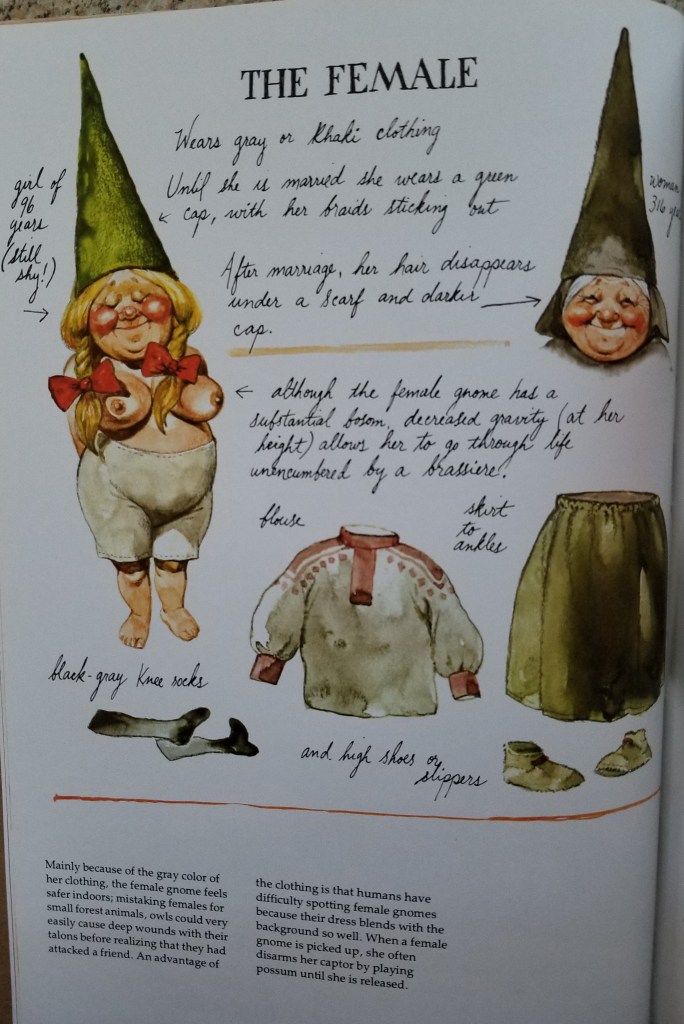 THE FEMALE
Wears gray or Khaki clothing
Until she is married she wears a green
cap, with her braids sticking out
After marriage, her hair disappears
under a scarf and darker
cap.
girl of
96
years
(still
shy!)
woman
316
although the female gnome has a
substantial bosom, decreased gravity (at her
height) allows her to go through life
unencumbered by a brassiere.
blouse
skirt
to
ankles
black-gray Knee socks
and high shoes or
slippers
Mainly because of the gray color of
her clothing, the female gnome feels
safer indoors; mistaking females for
small forest animals, owls could very
easily cause deep wounds with their
talons before realizing that they had
attacked a friend. An advantage of
the clothing is that humans have
difficulty spotting female gnomes
because their dress blends with the
background so well. When a female
gnome is picked up, she often
disarms her captor by playing
possum until she is released.